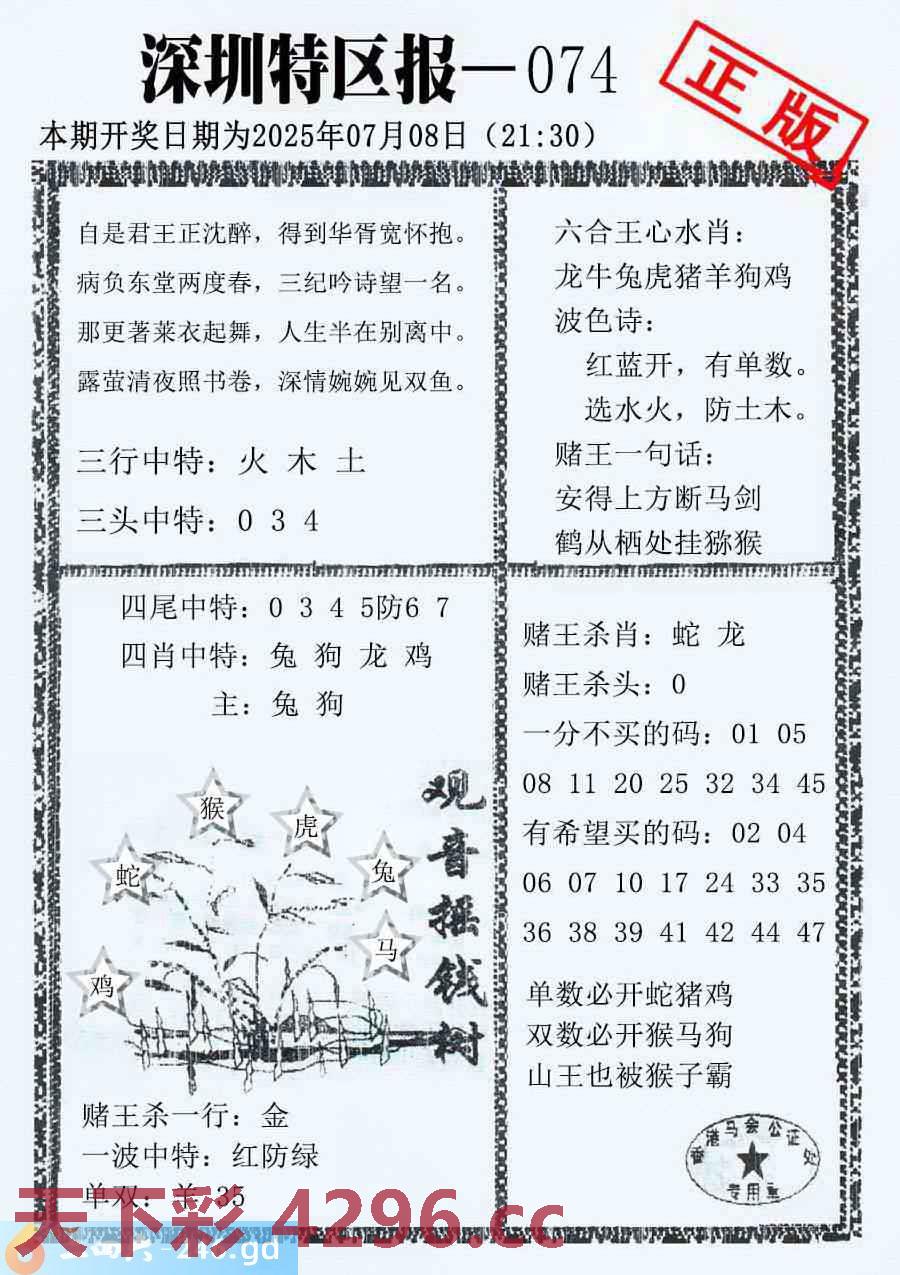 深圳特区报—074
正版
本期开奖日期为2025年07月08日（21:30）
自是君王正沈醉，得到华胥宽怀抱。
病负东堂两度春，三纪吟诗望一名。
那更著莱衣起舞，人生半在别离中。
露萤清夜照书卷，深情婉婉见双鱼。
三行中特：火 木 土
三头中特：0 3 4
六合王心水肖：
龙牛兔虎猪羊狗鸡
波色诗：
红蓝开，有单数。
选水火，防土木。
赌王一句话：
安得上方断马剑
鹤从栖处挂猕猴
四尾中特：0 3 4 5防6 7
四肖中特：兔 狗 龙 鸡
主：兔 狗
观音摇钱树
猴
虎
蛇
兔
马
鸡
赌王杀一行：金
一波中特：红防绿
单双：羊 35
赌王杀肖：蛇 龙
赌王杀头：0
一分不买的码：01 05
08 11 20 25 32 34 45
有希望买的码：02 04
06 07 10 17 24 33 35
36 38 39 41 42 44 47
单数必开蛇猪鸡
双数必开猴马狗
山王也被猴子霸
香港马会公证处
专用章
天下彩 4296.cc
-246.gd